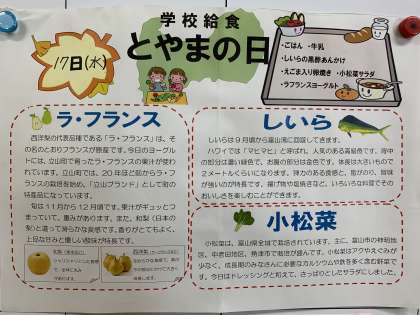 学校給食
とやまの日
17日(水)
・ごはん ・牛乳
・しいらの黒酢あんかけ
・えごま入り卵焼き ・小松菜サラダ
・ラフランスヨーグルト
ラ・フランス
西洋梨の代表品種である「ラ・フランス」は、そ
の名のとおりフランスが原産です。今日のヨーグル
トには、立山町で育ったラ・フランスの果汁が使わ
れています。立山町では、20年ほど前からラ・フ
ランスの栽培を始め、「立山ブランド」として町の
特産品になっています。
旬は11月から12月頃です。果汁がギュッとつ
まっていて、重みがあります。また、和梨（日本の
梨）と違って滑らかな食感です。香りがとてもよく、
上品な甘みと優しい酸味が特長です。
しいら
しいらは9月頃から富山湾に回遊してきます。
ハワイでは「マヒマヒ」と呼ばれ、人気のある高級魚です。背中
の部分は濃い緑色で、お腹の部分は金色です。体長は大きいもので
2メートルくらいになります。弾力のある食感と、脂がのり、旨味
が強いのが特長です。揚げ物や塩焼きなど、いろいろな料理でその
おいしさを楽しむことができます。
小松菜
小松菜は、富山県全域で栽培されています。主に、富山市の婦中地
区、中老田地区、魚津市で栽培が盛んです。小松菜はアクやえぐみが
少なく、成長期のみなさんに必要なカルシウムや鉄を多く含む野菜で
す。今日はドレッシングと和えて、さっぱりとしたサラダにしました。